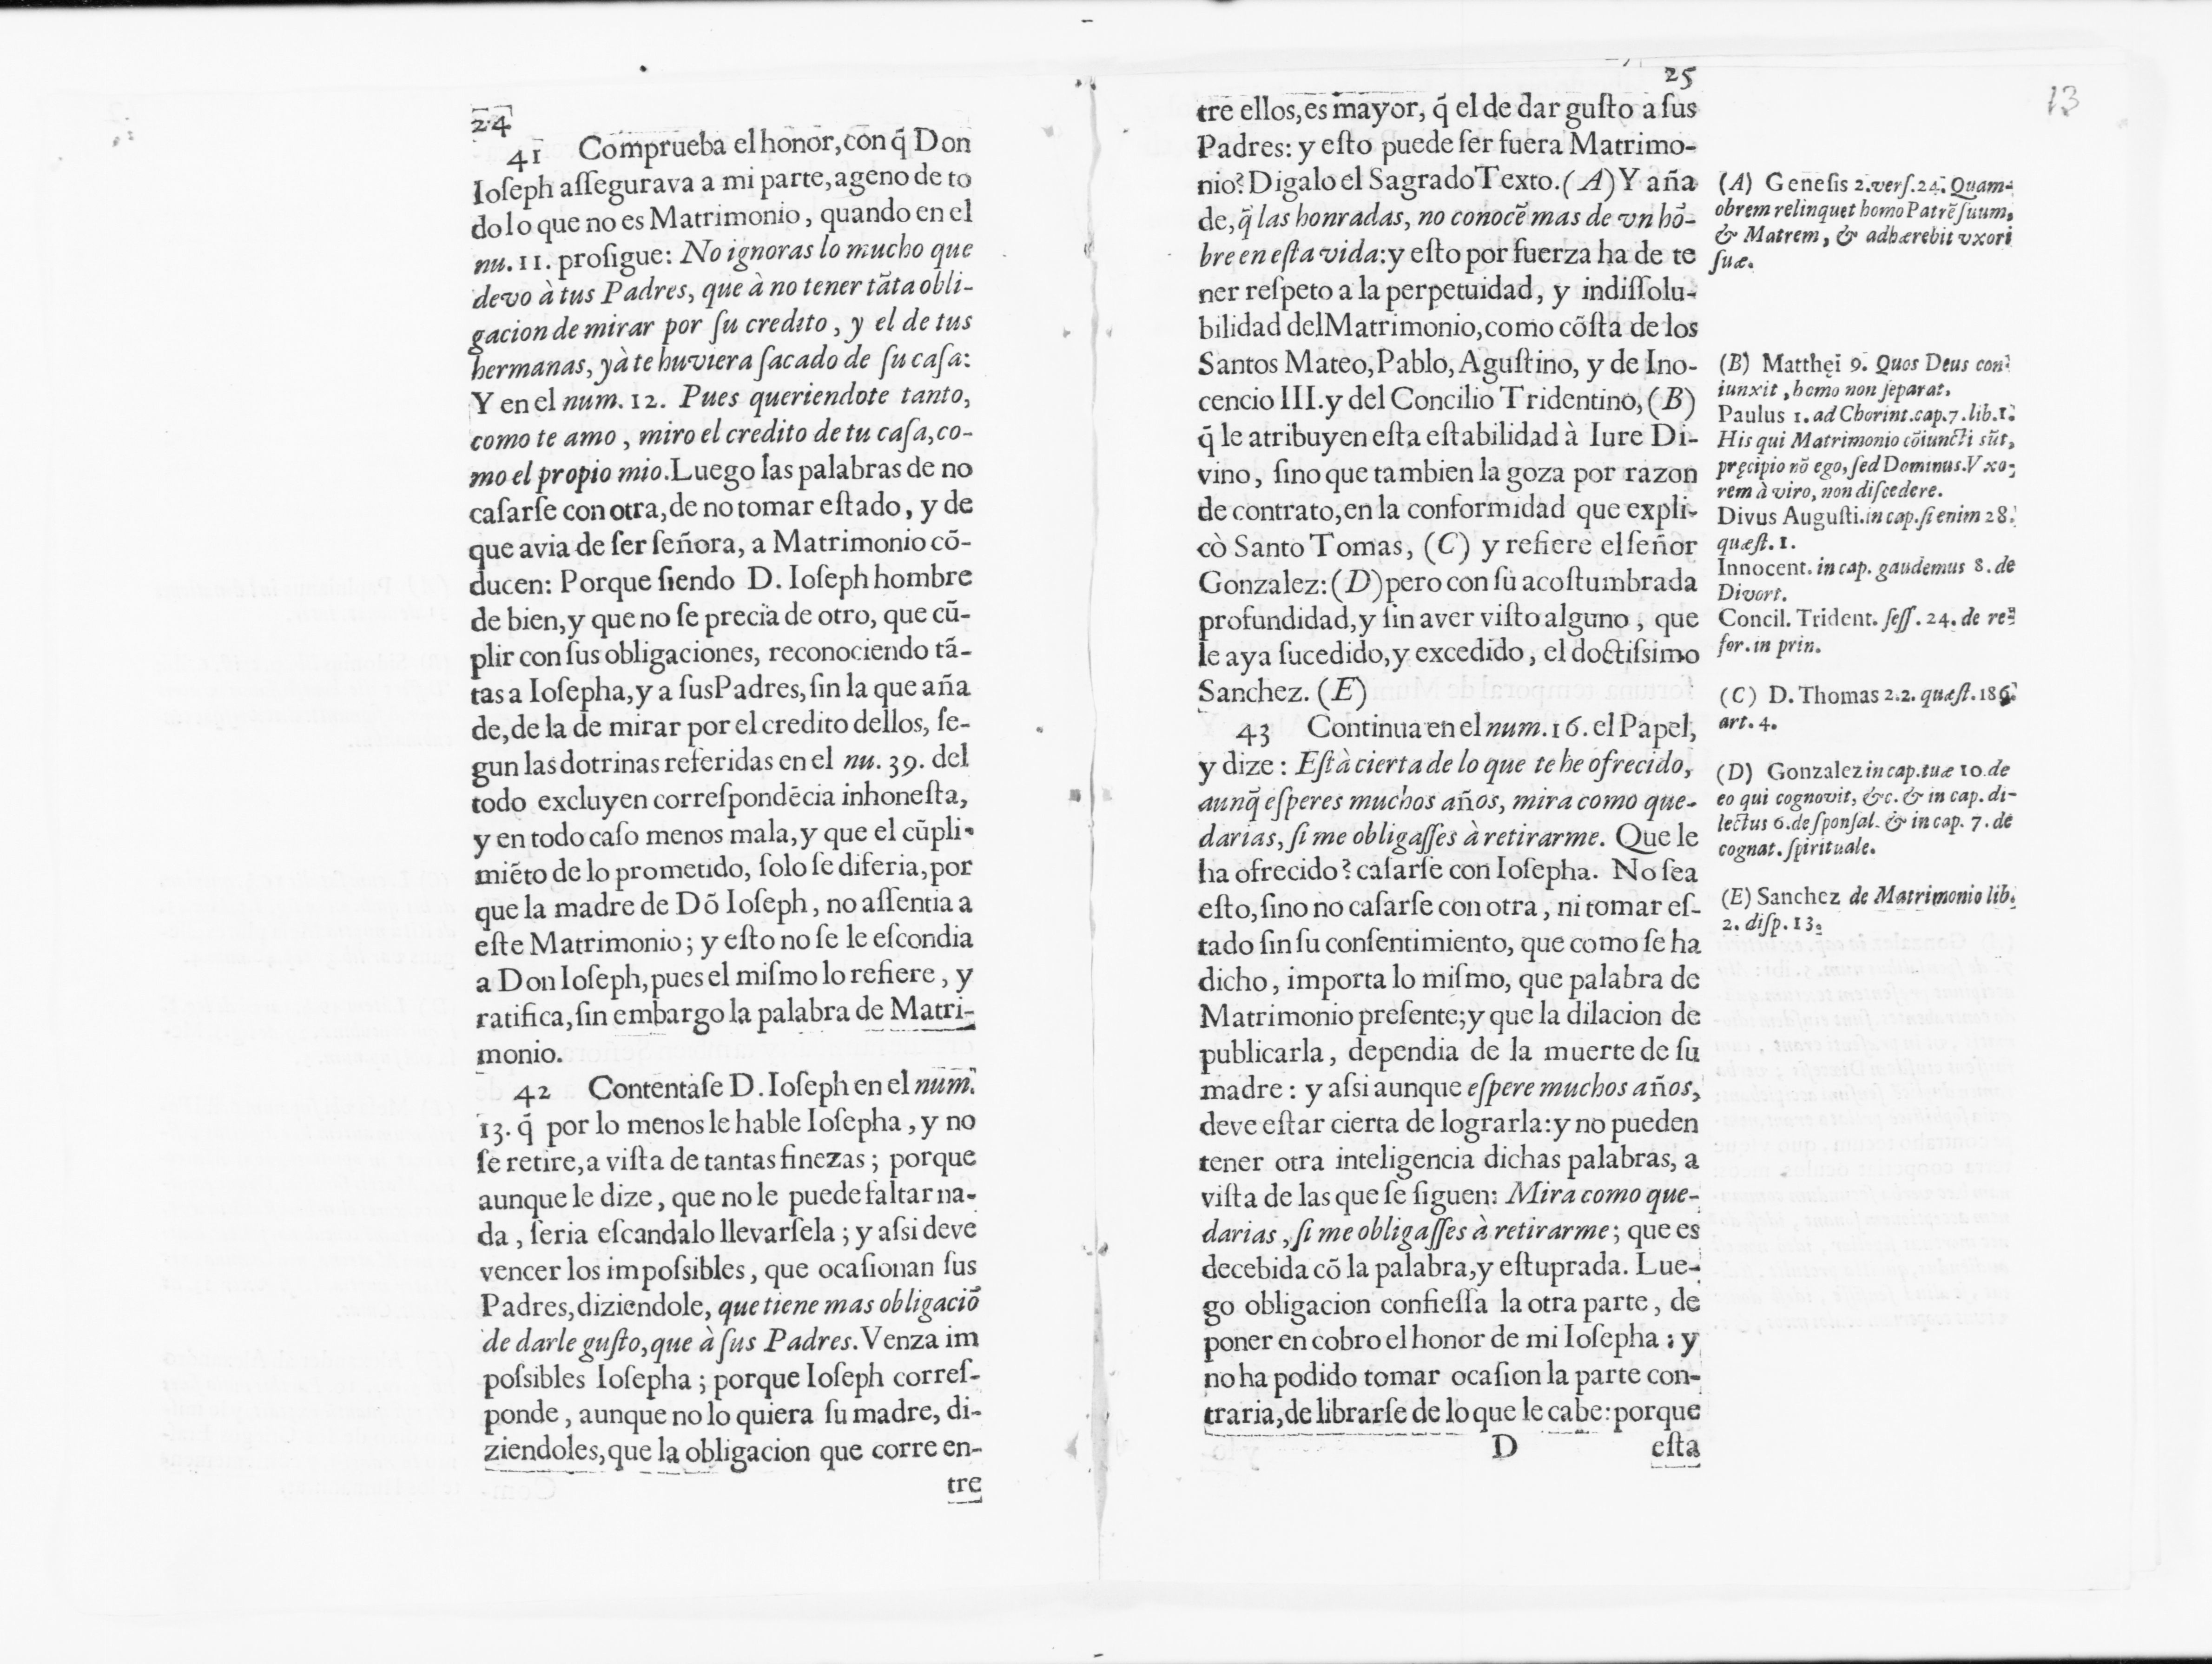 24
41 Comprueba el honor, con q̃ Don
Ioſeph aſſegurava a mi parte, ageno de to
do lo que no es Matrimonio, quando en el
nu. 11. proſigue: No ignoras lo mucho que
devo à tus Padres, que à no tener tãta obli-
gacion de mirar por ſu credito, y el de tus
hermanas, yà te huviera ſacado de ſu caſa:
Y en el num. 12. Pues queriendote tanto,
como te amo, miro el credito de tu caſa, co-
mo el propio mio. Luego las palabras de no
caſarſe con otra, de no tomar eſtado, y de
que avia de ſer ſeñora, a Matrimonio cõ-
ducen: Porque ſiendo D. Ioſeph hombre
de bien, y que no ſe precia de otro, que cũ-
plir con ſus obligaciones, reconociendo tã-
tas a Ioſepha, y a ſus Padres, ſin la que aña
de, de la de mirar por el credito dellos, ſe-
gun las dotrinas referidas en el nu. 39. del
todo excluyen correſpondẽcia inhoneſta,
y en todo caſo menos mala, y que el cũpli-
miẽto de lo prometido, ſolo ſe diferia, por
que la madre de Dõ Ioſeph, no aſſentia a
eſte Matrimonio; y eſto no ſe le eſcondia
a Don Ioſeph, pues el miſmo lo refiere, y
ratifica, ſin embargo la palabra de Matri-
monio.
42 Contentaſe D. Ioſeph en el num.
13. q̃ por lo menos le hable Ioſepha, y no
ſe retire, a viſta de tantas finezas; porque
aunque le dize, que no le puede faltar na-
da, ſeria eſcandalo llevarſela; y aſsi deve
vencer los impoſsibles, que ocaſionan ſus
Padres, diziendole, que tiene mas obligaciõ
de darle guſto, que à ſus Padres. Venza im
poſsibles Ioſepha; porque Ioſeph correſ-
ponde, aunque no lo quiera ſu madre, di-
ziendoles, que la obligacion que corre en-
tre
25
13
tre ellos, es mayor, q̃ el de dar guſto a ſus
Padres: y eſto puede ſer fuera Matrimo-
nio? Digalo el Sagrado Texto. (A) Y aña
de, q̃ las honradas, no conocẽ mas de vn hõ-
bre en eſta vida: y eſto por fuerza ha de te
ner reſpeto a la perpetuidad, y indiſſolu-
bilidad del Matrimonio, como cõſta de los
Santos Mateo, Pablo, Aguſtino, y de Ino-
cencio III. y del Concilio Tridentino, (B)
q̃ le atribuyen eſta eſtabilidad à Iure Di-
vino, ſino que tambien la goza por razon
de contrato, en la conformidad que expli-
cò Santo Tomas, (C) y refiere el ſeñor
Gonzalez: (D) pero con ſu acoſtumbrada
profundidad, y ſin aver viſto alguno, que
le aya ſucedido, y excedido, el doctiſsimo
Sanchez. (E)
43 Continua en el num. 16. el Papel,
y dize: Eſtà cierta de lo que te he ofrecido,
aunq̃ eſperes muchos años, mira como que-
darias, ſi me obligaſſes à retirarme. Que le
ha ofrecido? caſarſe con Ioſepha. No ſea
eſto, ſino no caſarſe con otra, ni tomar eſ-
tado ſin ſu conſentimiento, que como ſe ha
dicho, importa lo miſmo, que palabra de
Matrimonio preſente; y que la dilacion de
publicarla, dependia de la muerte de ſu
madre: y aſsi aunque eſpere muchos años,
deve eſtar cierta de lograrla: y no pueden
tener otra inteligencia dichas palabras, a
viſta de las que ſe ſiguen: Mira como que-
darias, ſi me obligaſſes à retirarme; que es
decebida cõ la palabra, y eſtuprada. Lue-
go obligacion confieſſa la otra parte, de
poner en cobro el honor de mi Ioſepha: y
no ha podido tomar ocaſion la parte con-
traria, de librarſe de lo que le cabe: porque
D eſta
(A) Geneſis 2. verſ. 24. Quam-
obrem relinquet homo Patrẽ ſuum,
& Matrem, & adhærebit vxori
ſuæ.
(B) Matthęi 9. Quos Deus con-
iunxit, homo non ſeparat.
Paulus 1. ad Chorint. cap. 7. lib. 1.
His qui Matrimonio cõiuncti sũt,
pręcipio nõ ego, ſed Dominus. Vxo-
rem à viro, non diſcedere.
Divus Auguſti. in cap. ſi enim 28.
quæſt. 1.
Innocent. in cap. gaudemus 8. de
Divort.
Concil. Trident. ſeſſ. 24. de re-
for. in prin.
(C) D. Thomas 2.2. quæſt. 186.
art. 4.
(D) Gonzalez in cap. tuæ 10. de
eo qui cognovit, &c. & in cap. di-
lectus 6. de ſponſal. & in cap. 7. de
cognat. ſpirituale.
(E) Sanchez de Matrimonio lib.
2. diſp. 13.